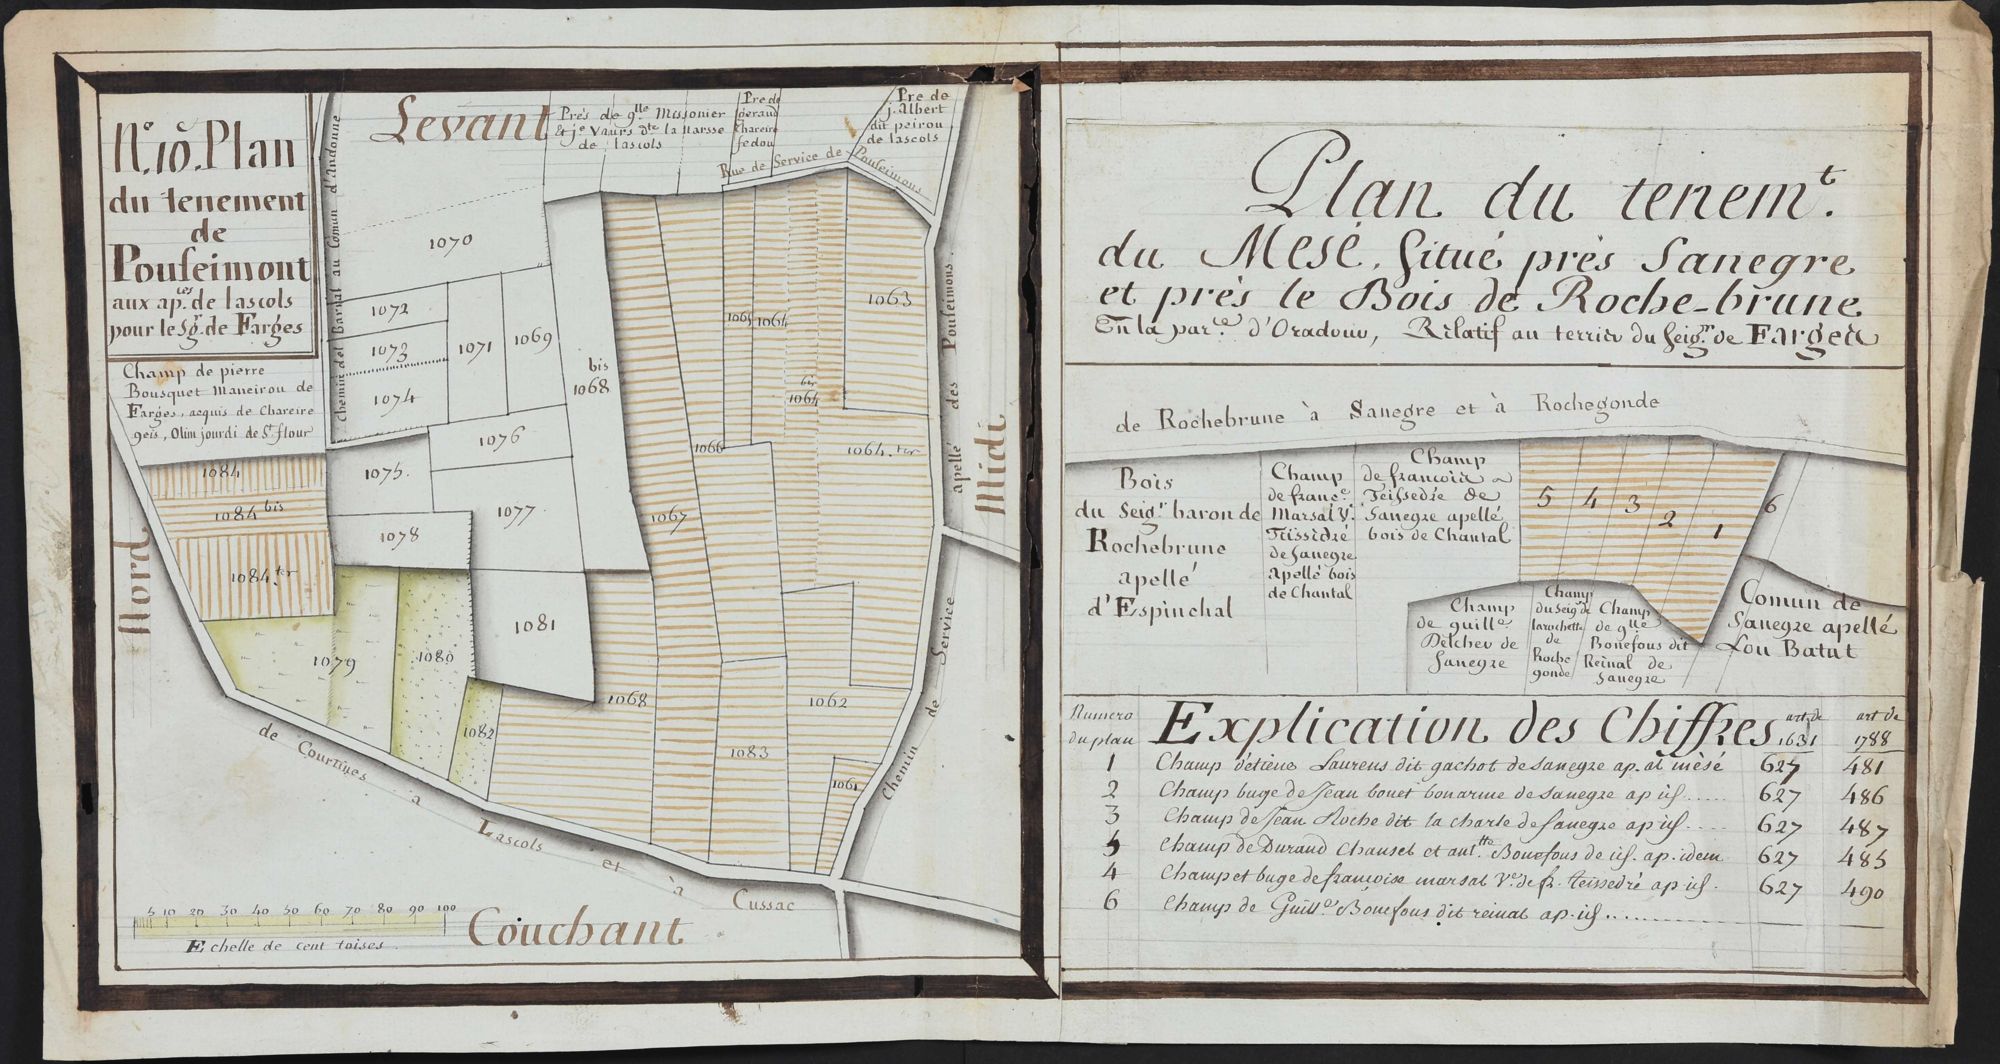 N.º 10. Plan
du tenement
de
Pouseimont
aux ap.ces de lascols
pour le Sg.r de Farges
Champ de pierre
Bousquet Maneirou de
Farges, acquis de Chareire
geis, Olim jourdi de St flour
Chemin del Barnal au Comun d'Andonne
Levant
Prés de g.lle Missonier
Et j.e Vaurs d.te la Narsse
de lascols
Pre de
geraud
Chareire
fedou
Pre de
j. Albert
dit peirou
de lascols
Rue de Service de Pouseimons
Nord
Midi
Couchant
1070
1072
1073
1074
1071
1069
bis
1068
1076
1075.
1077
1078
1084
1084 bis
1084 ter
1079
1080
1081
1082
1068
1067
1066
1065
1064
bis
1064
1063
1064. ter
1062
1083
1061
Chemin de Service apellé des Pouseimons.
de Courtines a Lascols et à Cussac
5 10 20 30 40 50 60 70 80 90 100
Echelle de cent toises.
Plan du tenem.t
du Mesé, Situé près Sanegre
et près le Bois de Roche-brune
En la par.ce d'Oradour, Relatif au terrier du Seig.r de Farges
de Rochebrune à Sanegre et à Rochegonde
Bois
du Seig.r baron de
Rochebrune
apellé
d'Espinchal
Champ
de franc.e
Marsal V.e
Teissedré
de Sanegre
apellé bois
de Chantal
Champ
de francois
Teissedre de
Sanegre apellé
bois de Chantal
5 4 3 2 1 6
Champ
de guill.e
Delcher de
Sanegre
Champ
du Seig.r de
larochette
de
Roche
gonde
Champ
de g.lle
Bonefous dit
Reinal de
Sanegre
Comun de
Sanegre apellé
Lou Batut
Numero
du plan
Explication des Chiffres
art. de
1631
art de
1788
1 Champ d'étiene Laurens dit gachot de Sanegre ap. al mèsé 627 481
2 Champ buge de Jean bouet bonarme de Sanegre ap id. ..... 627 486
3 Champ de Jean Roche dit la charle de Sanegre ap id. .... 627 487
5 Champ de Durand Chauset et ant.tte Bonefous de id. ap. idem 627 485
4 Champ et buge de francoise marsal V.e de f. teissedre ap id. 627 490
6 Champ de Guill.e Bonefous dit reinal ap. id. ..........